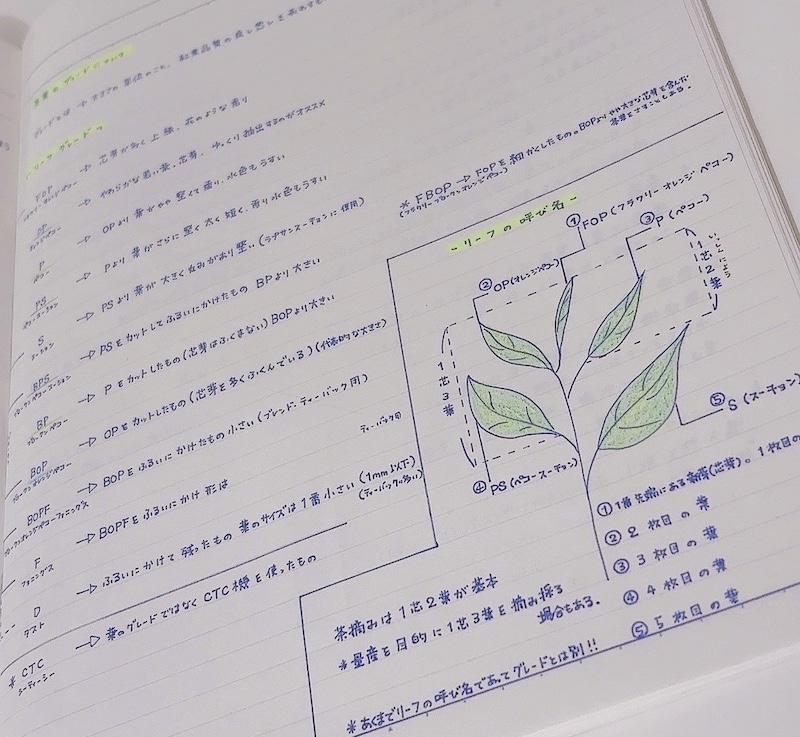 茶葉のグレードについて
グレードとは → 大きさの単位のこと。
- リーフグレード -
FOP → 芯芽が多く上級、花のような香り
OP → やわらかな若い葉、芯芽、ゆっくり抽出するのがオススメ
オレンジペコー
P → OPより葉がやや堅くて香り、水色もうすい
ペコー
PS → Pより葉がさらに堅く太く短く、香り水色もうすい
ペコースーチョン
S → PSより葉が大きく丸みがあり堅い(ラプサンスーチョンに使用)
スーチョン
BPS → PSをカットしてふるいにかけたもの BPより大きい
ブロークンペコースーチョン
BP → Pをカットしたもの(芯芽はふくまない) BOPより大きい
ブロークンペコー
BOP → OPをカットしたもの(芯芽を多くふくんでいる)(代表的な大きさ)
ブロークンオレンジペコー
BOPF → BOPをふるいにかけたもの 小さい(ブレンド・ティーバック用)
ブロークンオレンジペコーファニングス
F → BOPFをふるいにかけ 形は
ティーバック用
ファニングス
D → ふるいにかけて残ったもの 葉のサイズは1番小さい(1mm以下)
(ティーバックの多い)
ダスト
※CTC → 葉のグレードではなくCTC機を使ったもの
シーティーシー
※FBOP → FOPを細かくしたもの。BOPよりやや大きな芯芽を含んだ
茶葉をさすこともある。
(フラワリーブロークンオレンジペコー)
- リーフの呼び名 -
① FOP(フラワリーオレンジペコー)
② OP(オレンジペコー)
③ P(ペコー)
いっしんによう
1芯2葉
1芯3葉
④ PS(ペコースーチョン)
⑤ S(スーチョン)
① 1番先端にある新芽(芯芽)。1枚目の
② 2枚目の葉
③ 3枚目の葉
④ 4枚目の葉
⑤ 5枚目の葉
茶摘みは1芯2葉が基本
※量産を目的に1芯3葉を摘み採る
場合もある。
※あくまでリーフの呼び名であってグレードとは別!!